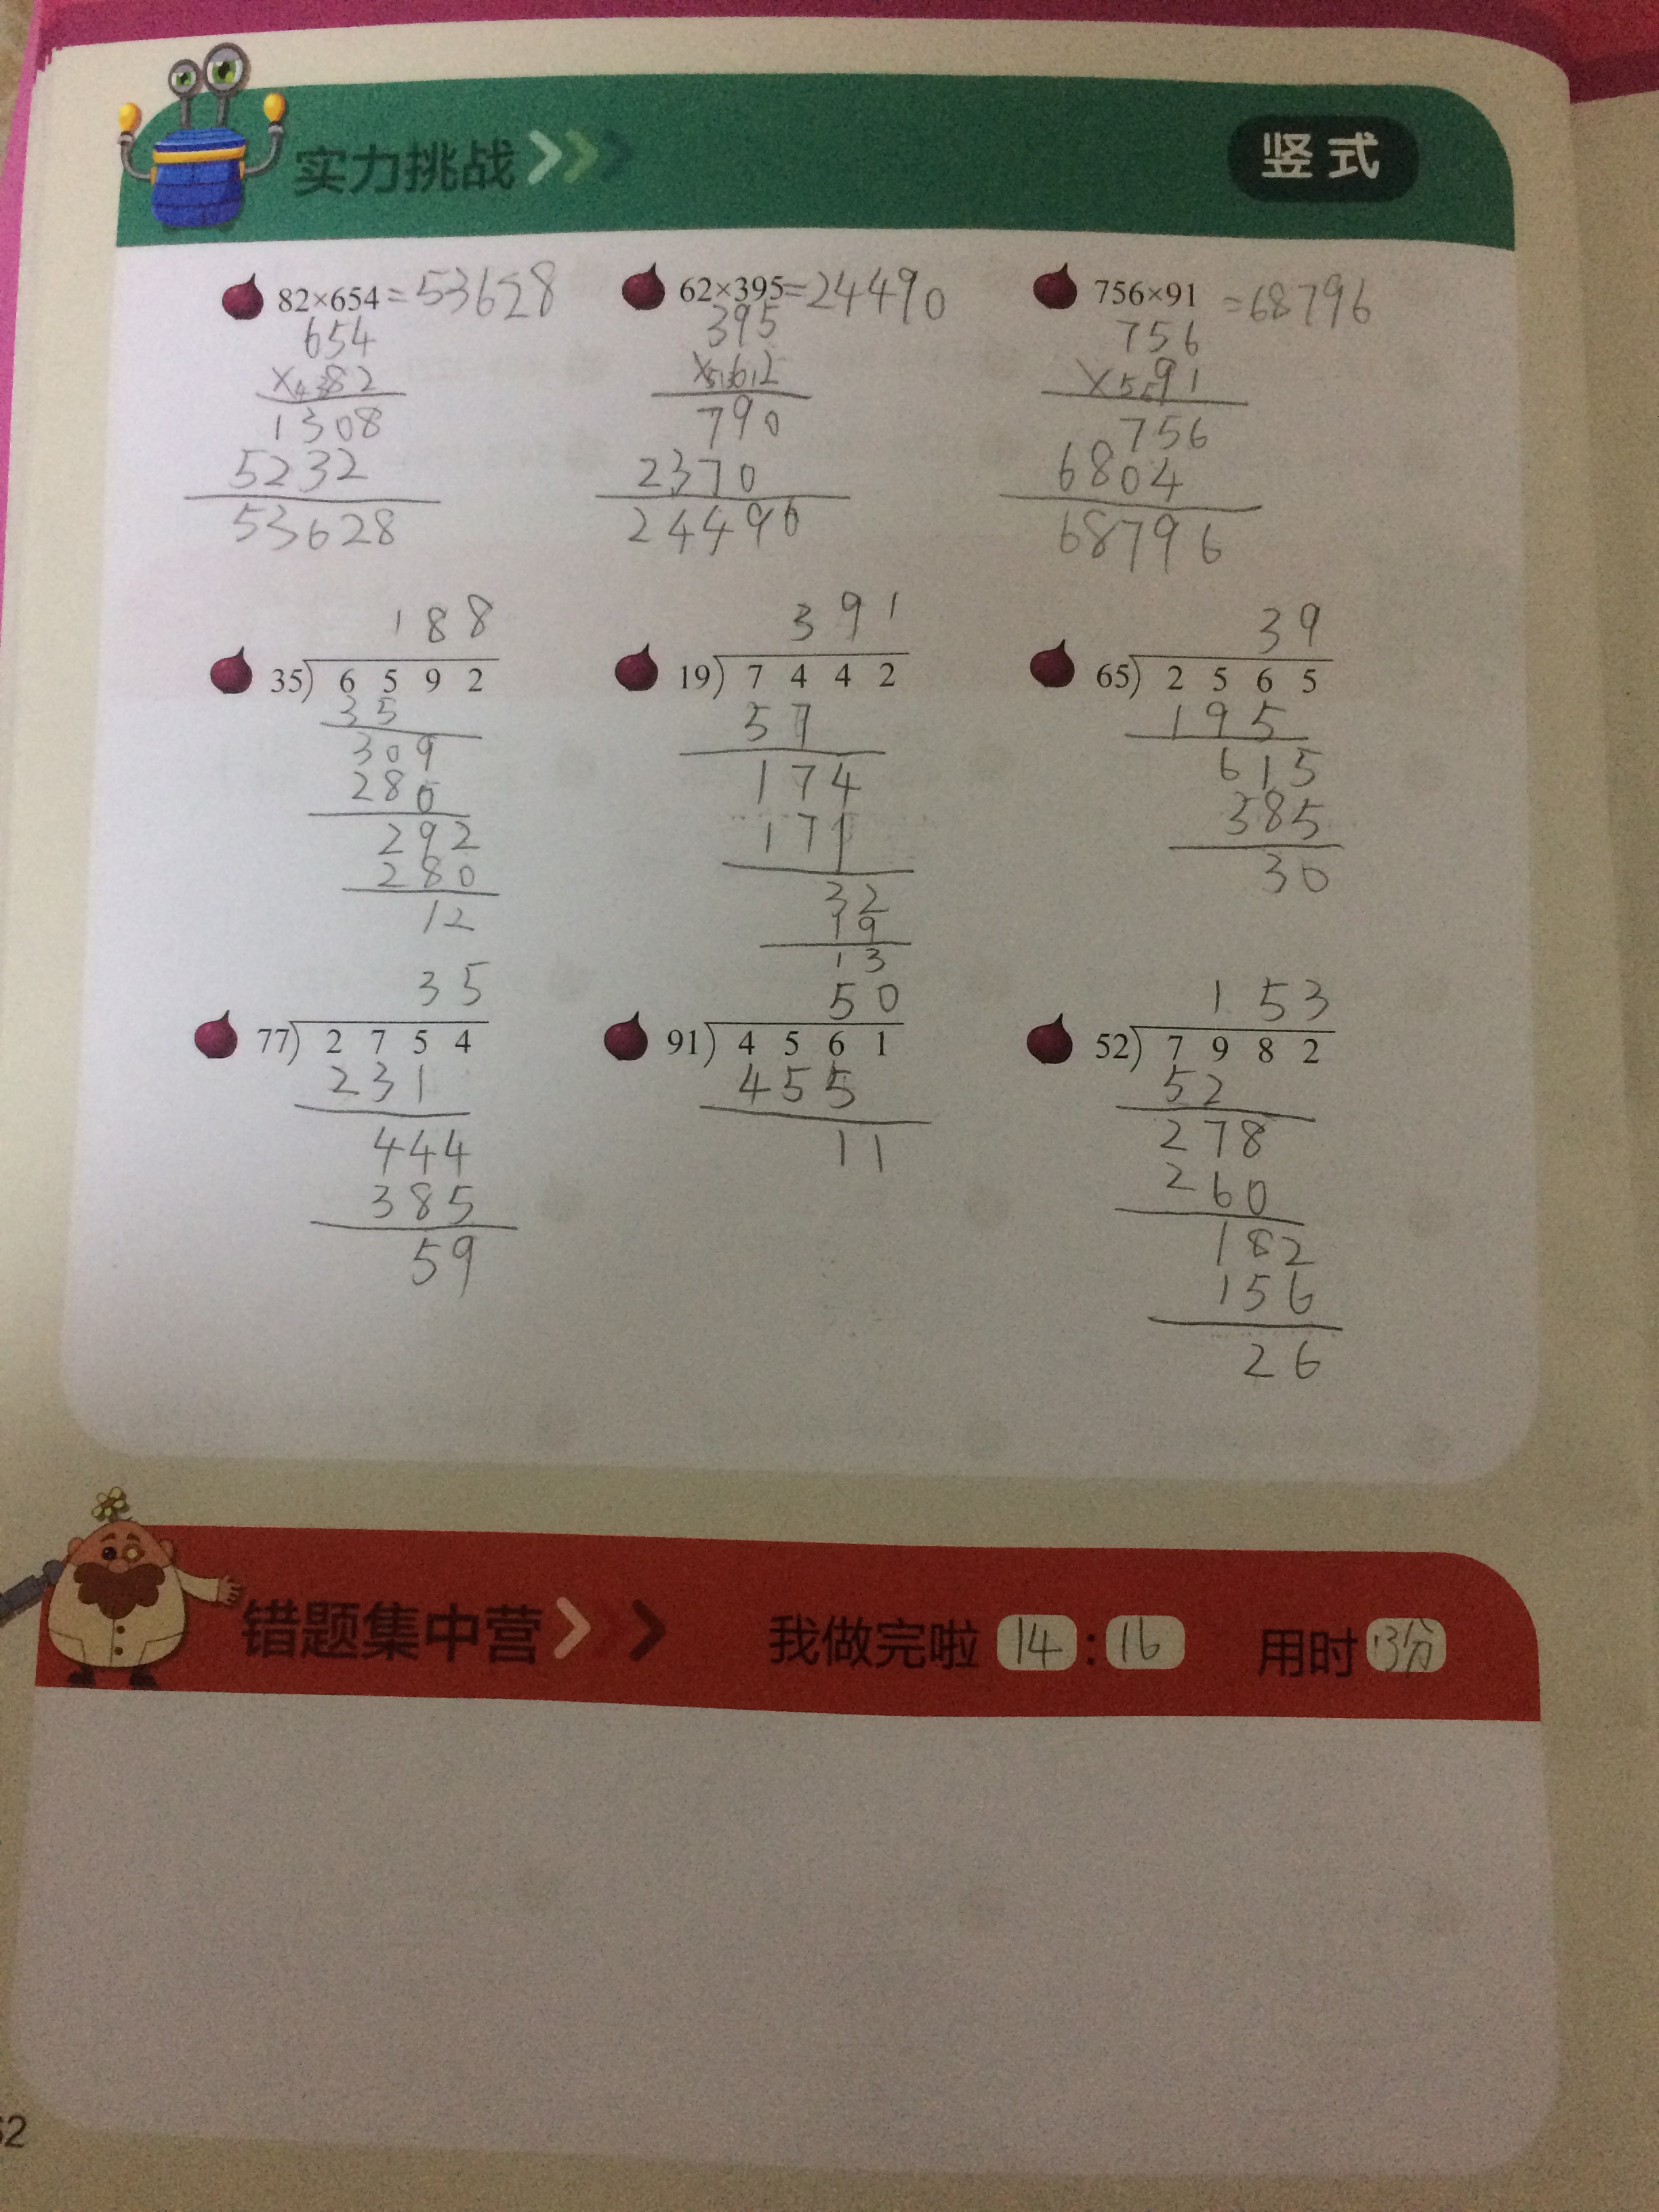 实力挑战
竖式
82×654=53628
654
×82
1308
5232
53628
62×395=24490
395
×62
790
2370
24490
756×91 =68796
756
×91
756
6804
68796
188
35)6 5 9 2
35
309
280
292
280
12
391
19)7 4 4 2
57
174
171
32
19
13
39
65)2 5 6 5
195
615
385
30
35
77)2 7 5 4
231
444
385
59
50
91)4 5 6 1
455
11
153
52)7 9 8 2
52
278
260
182
156
26
错题集中营 我做完啦 14:16 用时 13分